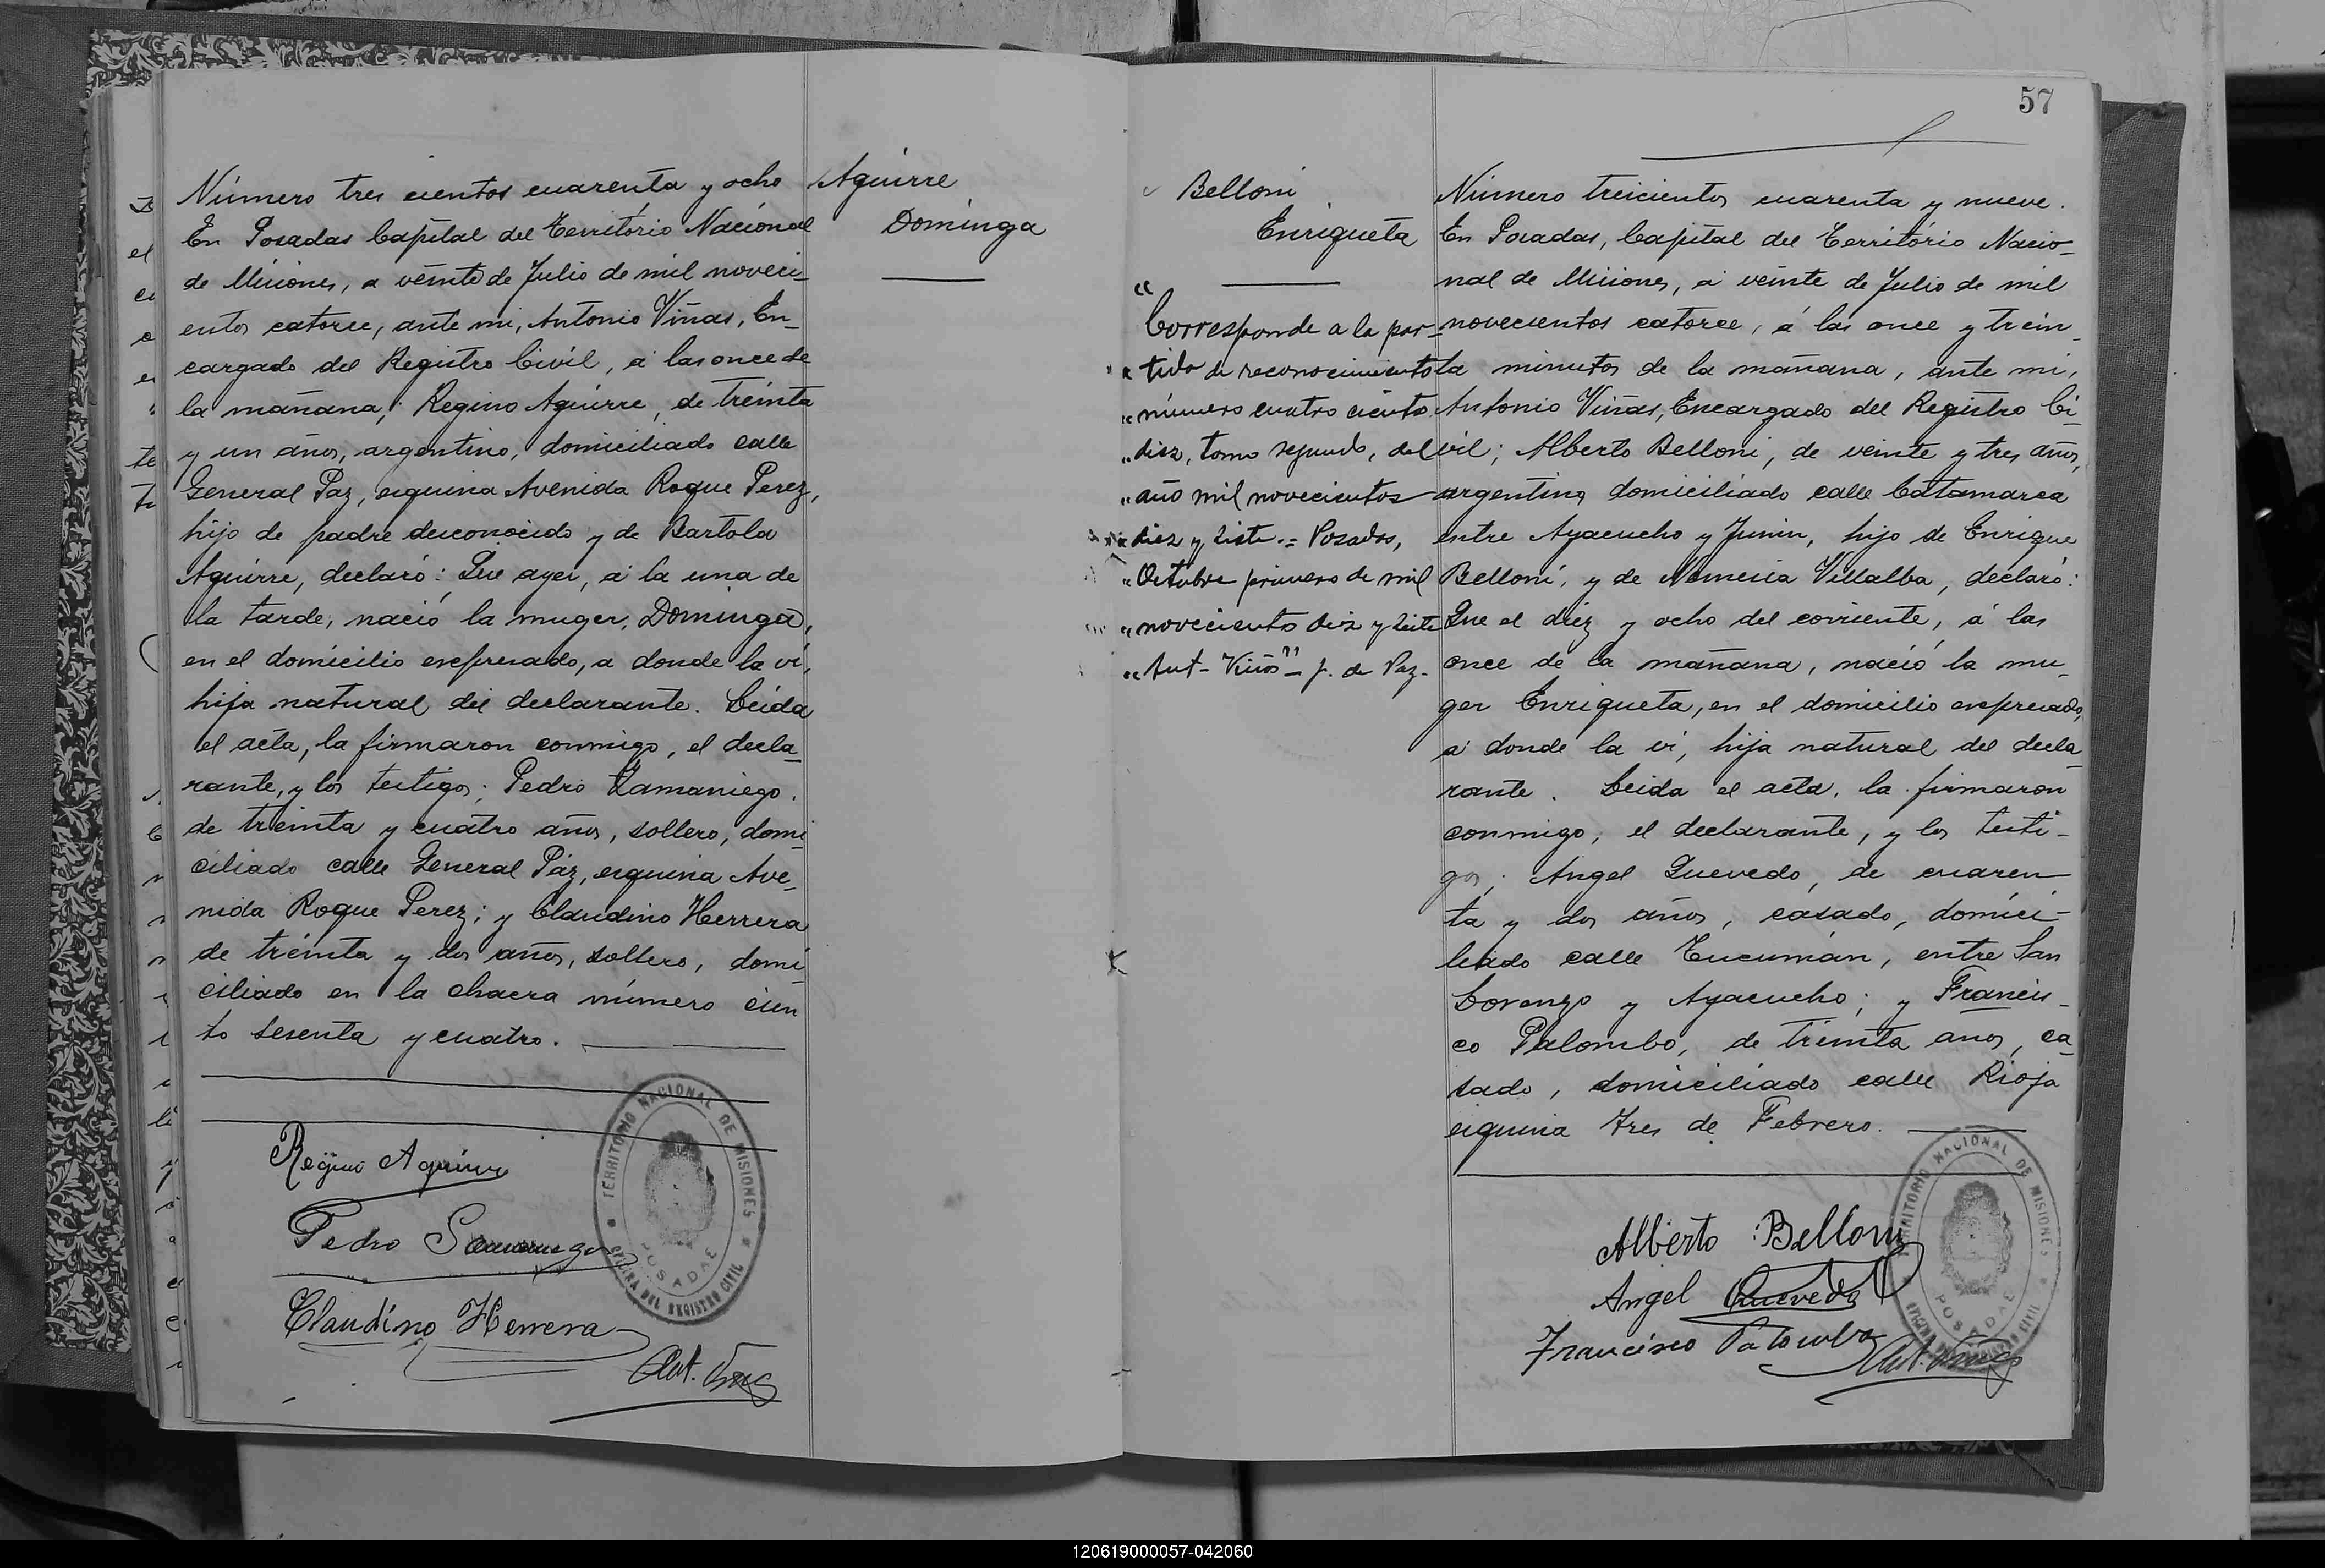 Número tres cientos cuarenta y ocho
En Posadas Capital del Territorio Nacional
de Misiones, a veinte de Julio de mil noveci-
entos catorce, ante mi, Antonio Viñas, En-
cargado del Registro Civil, á las once de
la mañana; Regino Aguirre, de treinta
y un años, argentino, domiciliado calle
General Paz, esquina Avenida Roque Perez,
hijo de padre desconocido y de Bartola
Aguirre, declaró: Que ayer, á la una de
la tarde, nació la muger, Dominga,
en el domicilio expresado, a donde la ví,
hija natural del declarante. Leida
el acta, la firmaron conmigo, el decla-
rante, y los testigos; Pedro Zamaniego.
de treinta y cuatro años, soltero, domi-
ciliado calle General Paz, esquina Ave-
nida Roque Perez; y Claudino Herrera
de treinta y dos años, soltero, domi
ciliado en la chacra número cien
to sesenta y cuatro.
Regino Aguirre
Pedro Samaniego
Claudino Herrera
Ant. Viñas
TERRITORIO NACIONAL DE MISIONES
POSADAS
OFICINA DEL REGISTRO CIVIL
Aguirre
Dominga
57
Belloni
Enriqueta
"
Corresponde a la par-
" tida de reconocimiento
" número cuatro ciento
" diez, tomo segundo, del
" año mil novecientos
" diez y siete.= Posadas,
" Octubre primero de mil
" novecientos diez y siete
" Ant- Viñas" - J. de Paz.
Número treicientos cuarenta y nueve.
En Posadas, Capital del Territorio Nacio-
nal de Misiones, á veinte de Julio de mil
novecientos catorce, á las once y trein-
ta minutos de la mañana, ante mi,
Antonio Viñas, Encargado del Registro Ci-
vil; Alberto Belloni, de veinte y tres años,
argentino, domiciliado calle Catamarca
entre Ayacucho y Junin, hijo de Enrique
Belloni, y de Nemesia Villalba, declaró:
Que el diez y ocho del corriente, á las
once de la mañana, nació la mu-
ger Enriqueta, en el domicilio expresado,
á donde la ví, hija natural del decla-
rante. Leida el acta, la firmaron
conmigo, el declarante, y los testi-
gos; Angel Quevedo, de cuaren
ta y dos años, casado, domici-
liado calle Tucumán, entre San
Lorenzo y Ayacucho; y Francis-
co Palombo, de treinta anos, ca-
sado, domiciliado calle Rioja
esquina Tres de Febrero.
Alberto Belloni
Angel Quevedo
Francisco Palombo
Ant. Viñas
TERRITORIO NACIONAL DE MISIONES
POSADAS
OFICINA DEL REGISTRO CIVIL
120619000057-042060